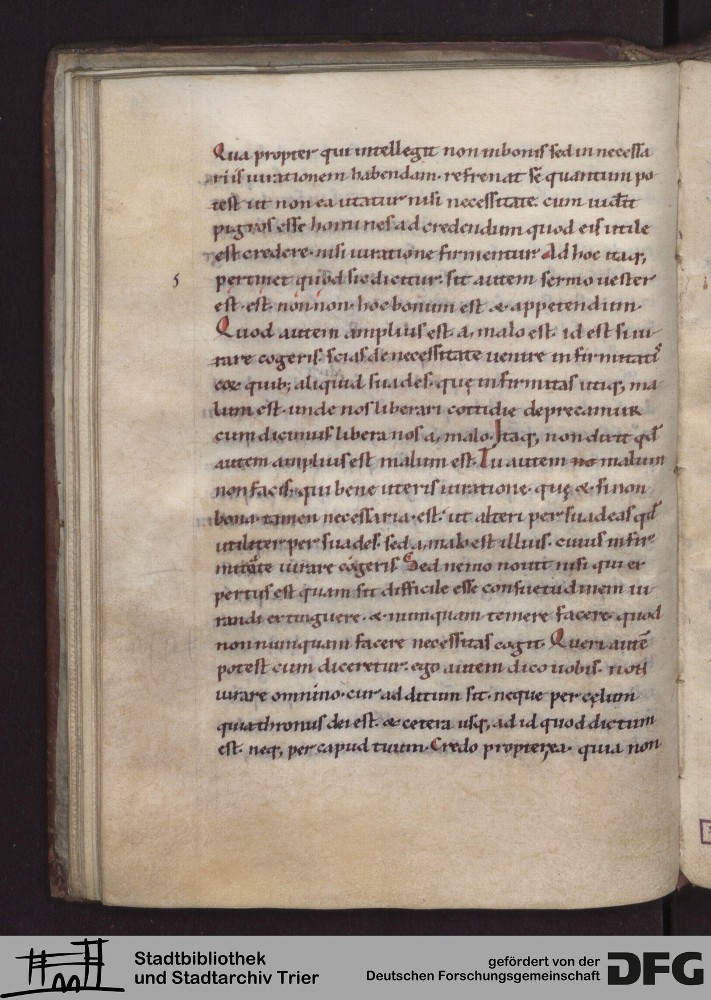 Qua propter qui intellegit non inbonis sed in necessa
riis iurationem habendam· refrenat sē quantum po
test ut non ea utatur nisi necessitate· cum uid&it
pigros esse homines ad credendum quod eis utile
est credere· nisi iuratione firmentur Ad hoc itaq;
5
pertinet quod sic dicitur· sit autem sermo uester
est· est· non non· hoc bonum est & appetendum·
Quod autem amplius est a, malo est· id est si iu
rare cogeris· scias de necessitate uenire infirmitatis
eo& quib; aliquid suades· quę infirmitas utiq; ma
lum est· unde nos liberari cottidie deprecamur
cum dicimus libera nos a, malo· Itaq; non dixit qđ
autem amplius est malum est· Tu autem no malum
non facis· qui bene uteris iuratione· quę & si non
bona· tamen necessaria· est· ut alteri persuadeas qđ
utiliter persuades· sed a, malo est illius· cuius infir
mitate iurare cogeris· Sed nemo nouit nisi qui ex
pertus est quam sit difficile esse consuetudinem iu
randi extinguere· & numquam temere facere· quod
non numquam facere necessitas cogit· Queri autē
potest cum diceretur· ego autem dico uobis· non
iurare omnino· cur additum sit· neque per cęlum
quia thronus dei est· & cetera usq; ad id quod dictum
est· neq; per capud tuum· Credo propterea· quia non
Stadtbibliothek
und Stadtarchiv Trier
gefördert von der
Deutschen Forschungsgemeinschaft
DFG